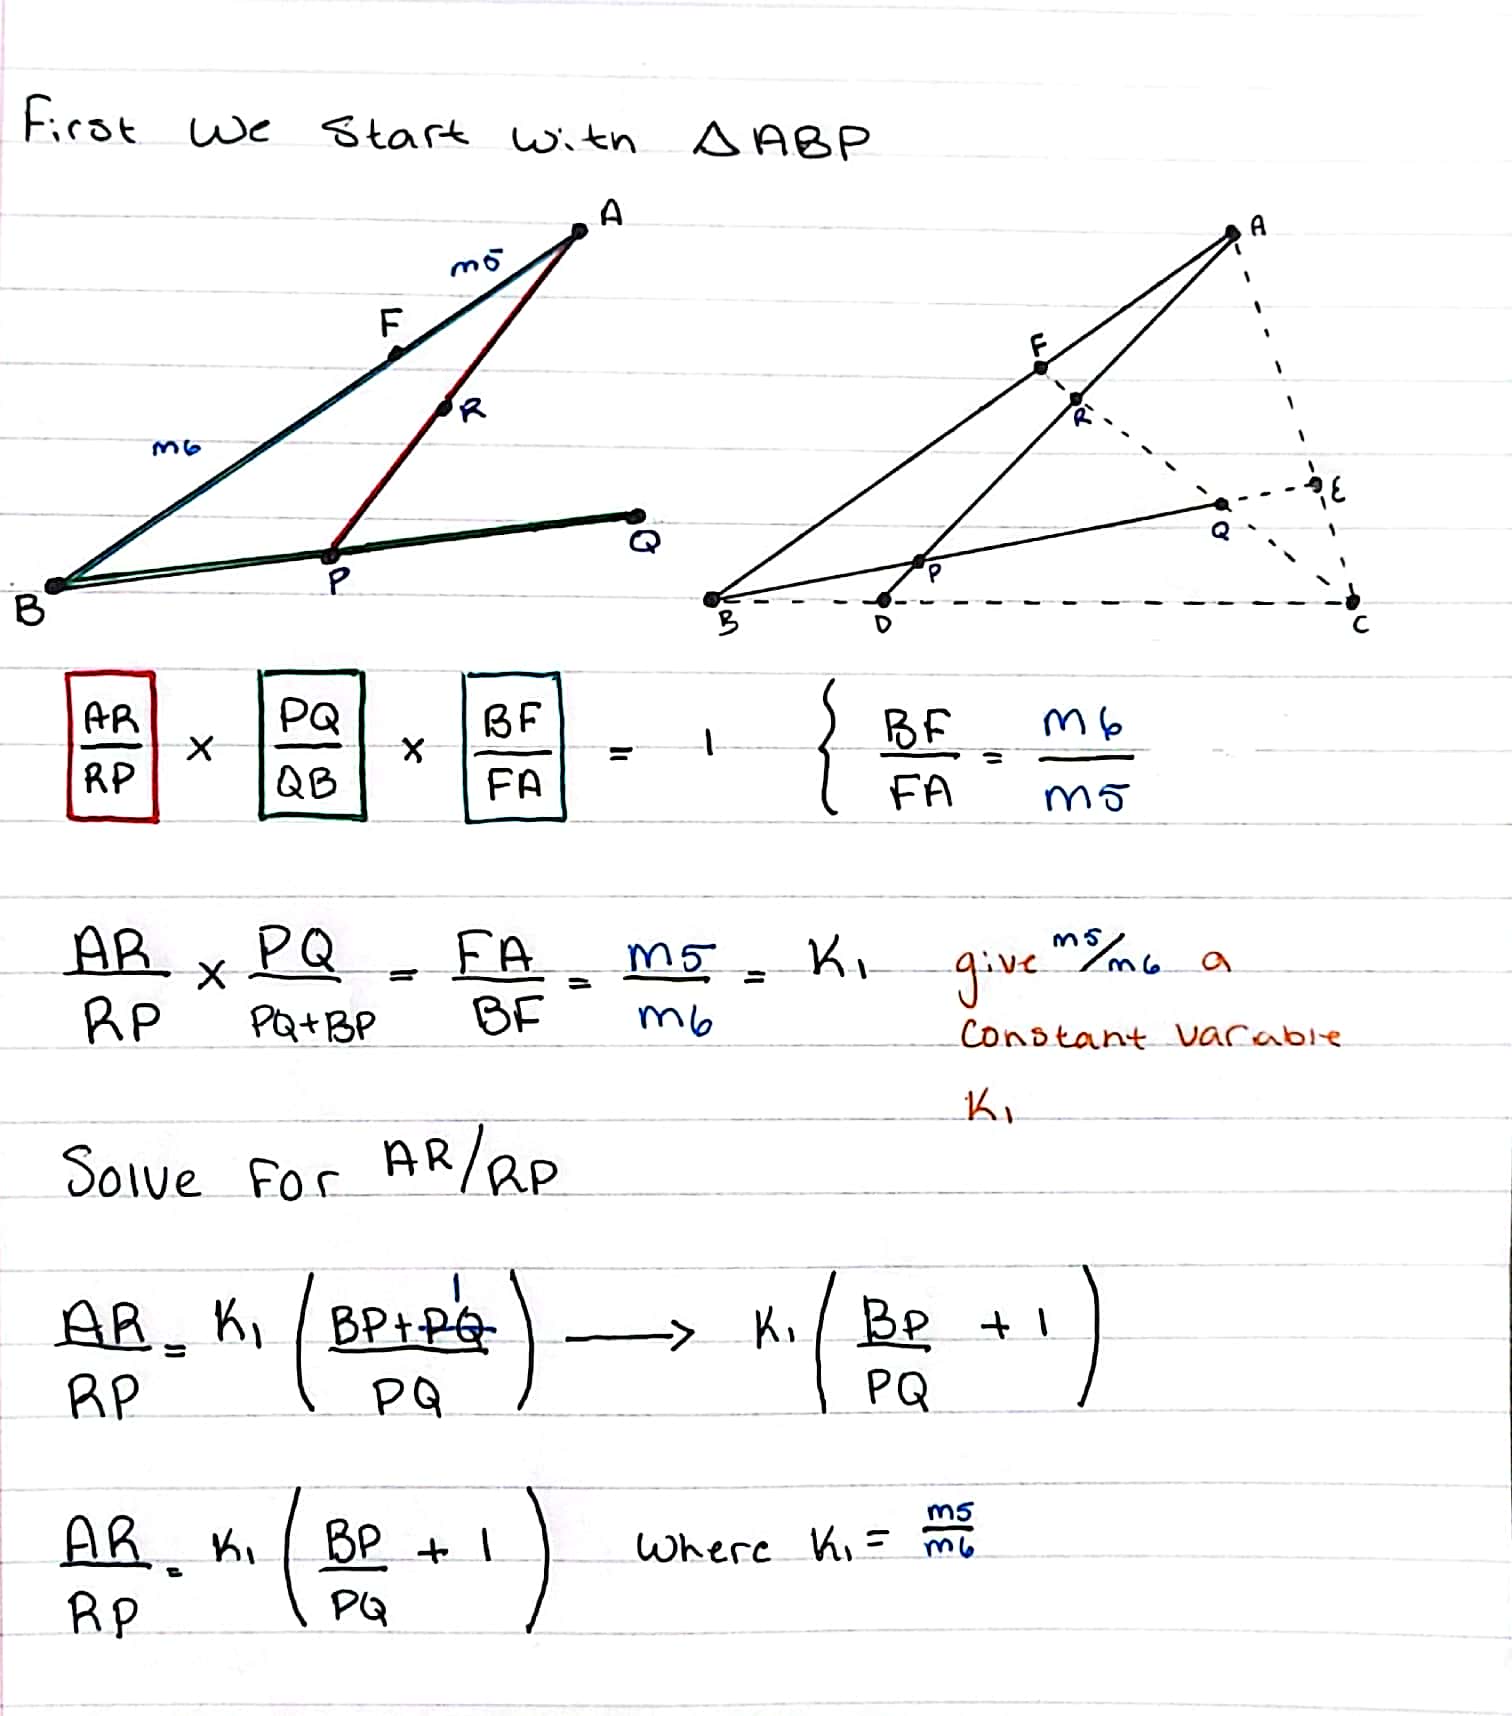 First We Start With △ABP
A
m5
F
R
m6
Q
P
B
A
F
R
E
Q
P
B
D
C
AR/RP x PQ/QB x BF/FA = 1 { BF/FA = m6/m5
AR/RP x PQ/PQ+BP = FA/BF = m5/m6 = K₁ give m5/m6 a
Constant varable
K₁
Solve For AR/RP
AR/RP = K₁ (BP+PQ 1/PQ) → K₁ (BP/PQ + 1)
AR/RP = K₁ (BP/PQ + 1) Where K₁ = m5/m6